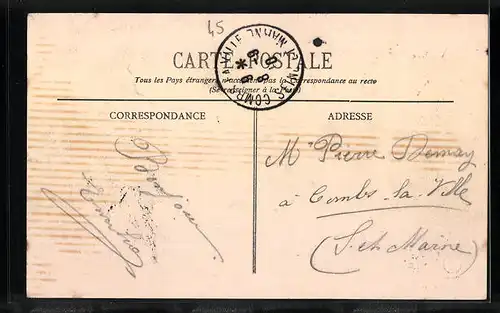 45
CARTE POSTALE
Tous les Pays étrangers n'acceptent pas la Correspondance au recto
(Se renseigner à la Poste)
CORRESPONDANCE
ADRESSE
Bonjour
Mr Pierre Demay
à Combs-la-Ville
(S. et Marne)